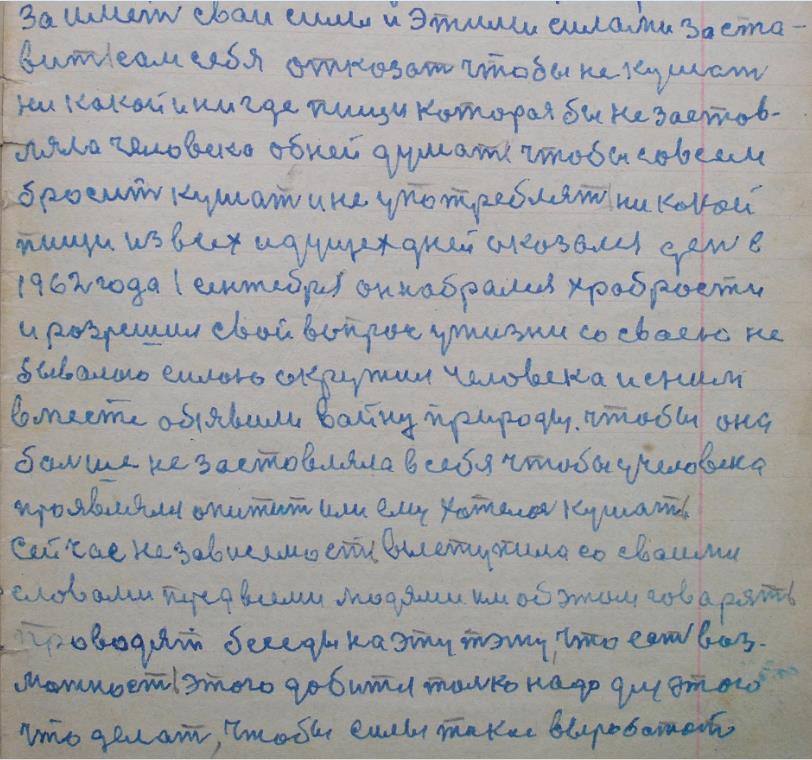 за имет сваи силы и Этими силами заста-
вит сам себя отказат чтобы не кушат
ни какой и нигде пищи которая бы не застов-
ляла человека обней думат чтобы совсем
бросит кушат и не употреблят ни какой
пищи из всех идущех дней оказался ден в
1962 года 1 сентября он набрался храбрости
и разрешил свой вопрос у жизни со сваею не
бывалою силою окружил человека и сним
вместе обявили вайну природы. чтобы она
болше не застовляла в себя чтобы учеловека
проявлялся опитит или ему хотелося кушать
Сейчас независемость вылетупила со сваими
словами пред всеми людями им об этом говарять
проводят беседы на эту тэму, что ест воз-
можност этого добится толко надо для этого
что делат, чтобы силы такие выработат